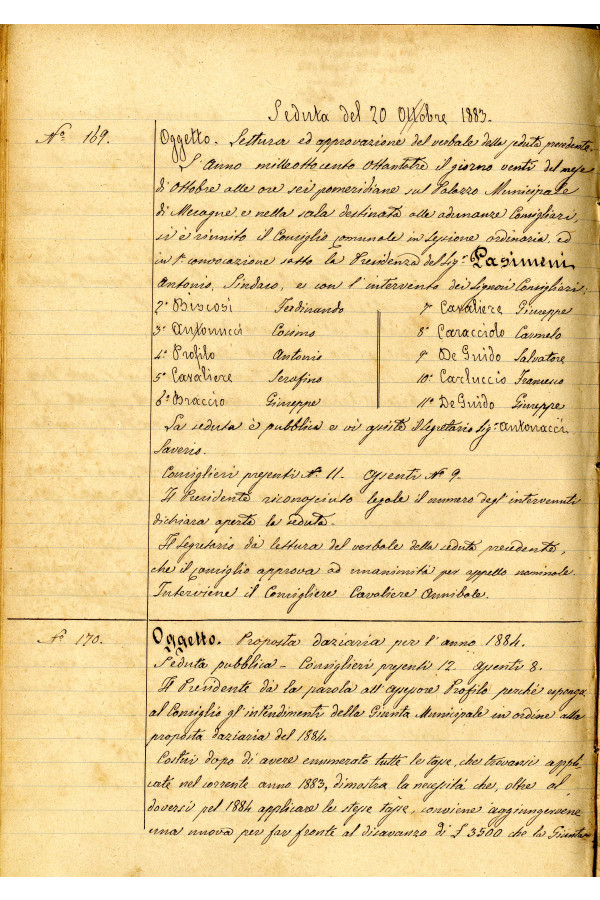 Seduta del 20 Ottobre 1883.
Nº 169.
Oggetto. Lettura ed approvazione del verbale della seduta precedente.
L'Anno milleottocento Ottantatre il giorno venti del mese
di Ottobre alle ore sei pomeridiane sul Palazzo Municipale
di Mesagne e nella sala destinata alle adunanze Consigliari,
si è riunito il Consiglio comunale in sessione ordinaria, ed
in 1ª convocazione sotto la Presidenza del Sigr Pasimeni
Antonio, Sindaco, e con l'intervento dei Signori Consiglieri:
2º Biscosi Ferdinando 7º Cavaliere Giuseppe
3º Antonucci Cosimo 8º Caracciolo Carmelo
4º Profilo Antonio 9º De Guido Salvatore
5º Cavaliere Serafino 10º Carluccio Francesco
6º Braccio Giuseppe 11º De Guido Giuseppe
La seduta è pubblica e vi assiste il Segretario Sigr Antonacci
Saverio.
Consiglieri presenti Nº 11 - Assenti Nº 9.
Il Presidente riconosciuto legale il numero degl'intervenuti
dichiara aperta la seduta.
Il Segretario dà lettura del verbale della seduta precedente,
che il Consiglio approva ad unanimità per appello nominale.
Interviene il Consigliere Cavaliere Annibale.
Nº 170.
Oggetto. Proposta daziaria per l'anno 1884.
Seduta pubblica - Consiglieri presenti 12 assenti 8.
Il Presidente dà la parola all'assessore Profilo perchè esponga
al Consiglio gl'intendimenti della Giunta Municipale in ordine alla
proposta daziaria del 1884.
Costui dopo di avere enumerato tutte le tasse, che trovansi appli-
cate nel corrente anno 1883, dimostra la necessità che, oltre al
doversi pel 1884 applicare le stesse tasse, conviene aggiungervene
una nuova per far fronte al disavanzo di £ 3500 che la Giunta